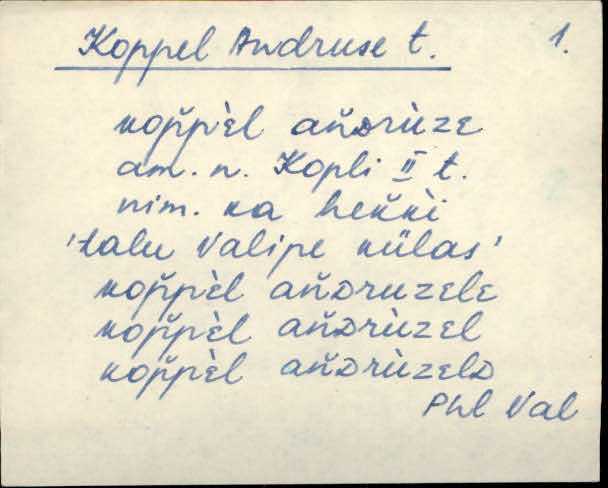 Koppel Andruse t. 1.
kop̆p̀el an̆ᴅrùze
am. n. Kopli II t.
nim. ka hek̆k̀i
'talu Valipe külas'
kop̆p̀el an̆ᴅruzele
kop̆p̀el an̆ᴅrùzel
kop̆p̀el an̆ᴅrùzelᴅ
Phl Val